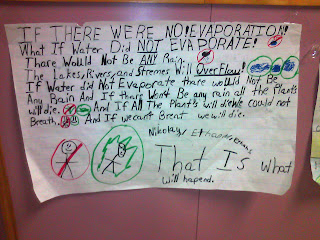 IF THERE WERE NO EVAPORATION!
What If Water Did NOT EVAPORATE!
Thare Would Not Be ANY Rain.
The Lakes, Rivers, and Stremes Will OverFlow!
If Water did Not Evaporate thare would Not Be
Any Rain And If thare Wont Be any rain all the Plants
will die. And If All The Plants will die We could not
Breath. And If we cant Brent we will die.
Nikolay Ethan
That Is What
will hapend.